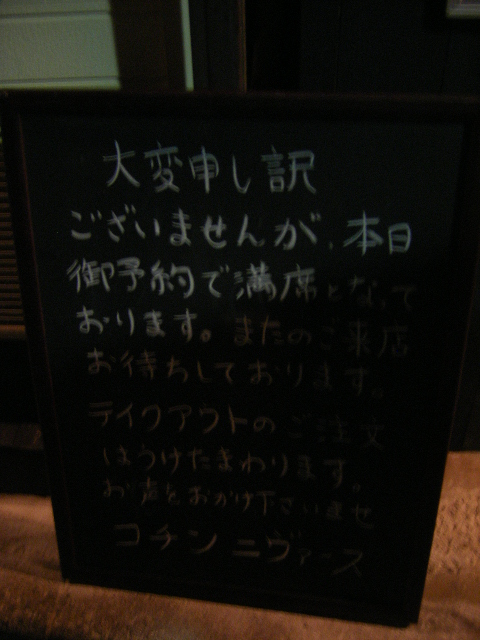 大変申し訳
ございませんが、本日
御予約で満席となって
おります。またのご来店
お待ちしております。
テイクアウトのご注文
はうけたまわります。
お声をおかけ下さいませ
コチンニヴァース